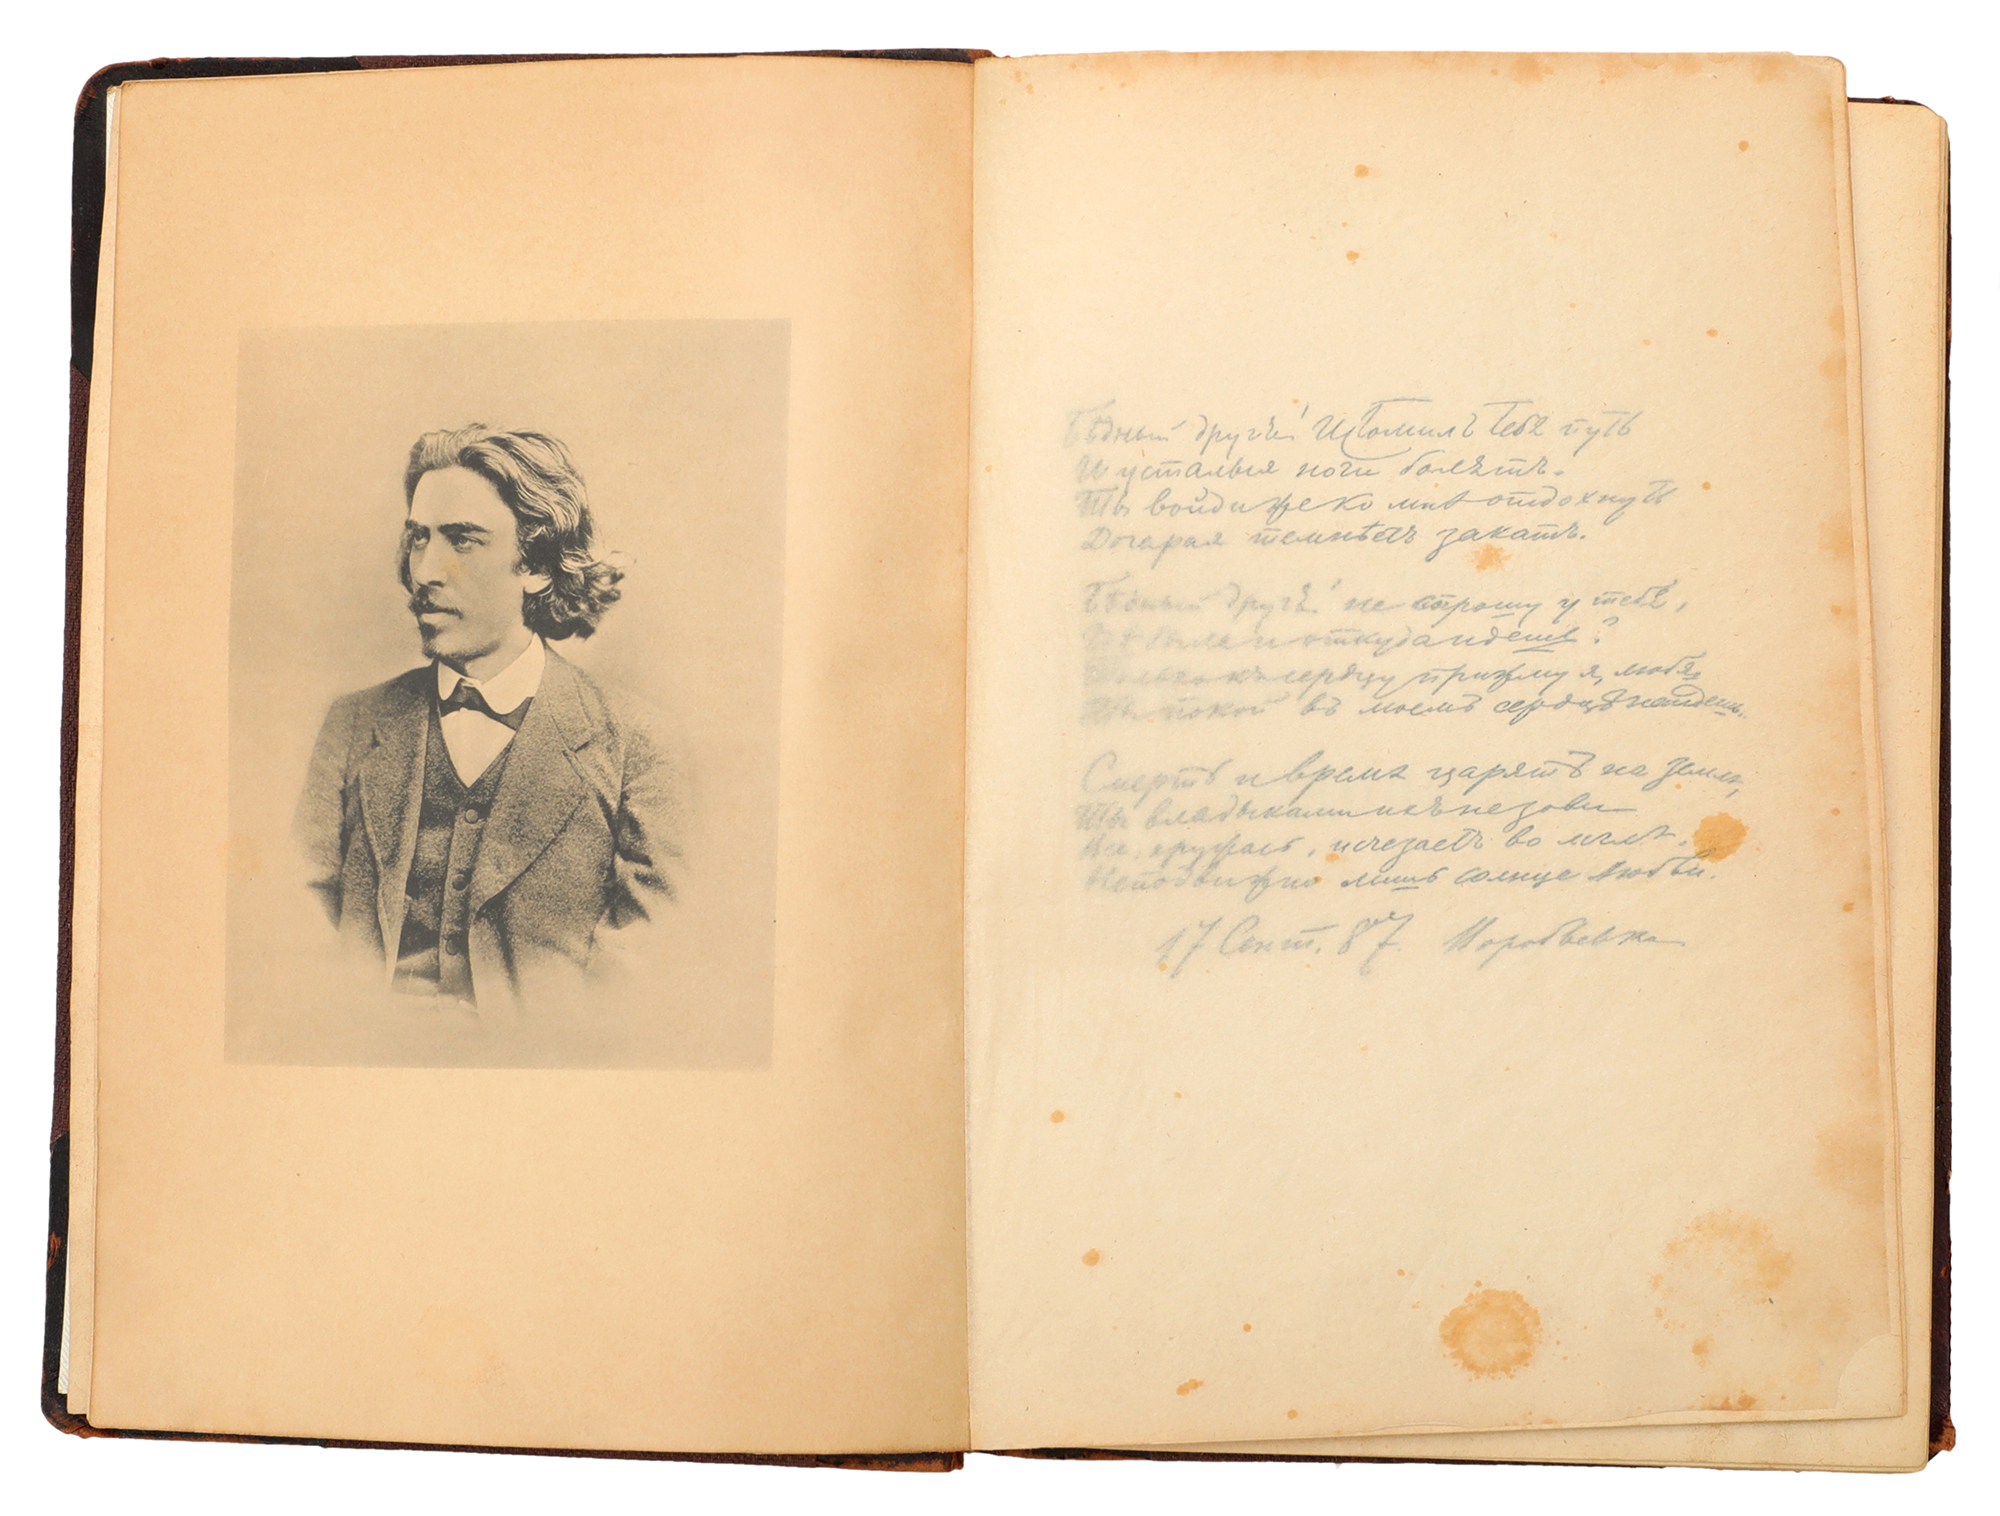 Бѣдный другъ! Истомилъ тебя путь
И усталыя ноги болятъ.
Ты войди же ко мнѣ отдохнуть
Догорая темнѣетъ закатъ.
Бѣдный другъ! не спрошу у тебя,
была и откуда идешь?
къ сердцу прижму я, любя
Ты покой въ моемъ сердцѣ найдешь.
Смерть и время царятъ на земле,
Ты владыками ихъ не зови
Все, кружась, исчезаетъ во мглѣ.
Неподвижно лишь солнце любви.
17 Сент. 87. Воробьевка